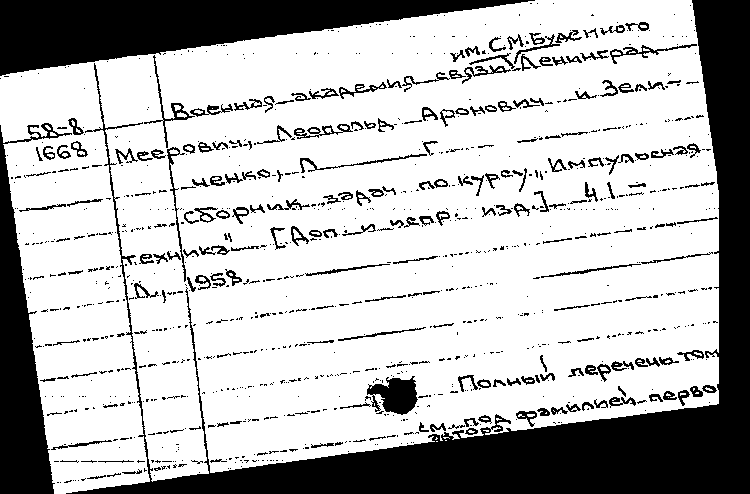 им. С.М. Буденного
Военная академия связи Ленинград
58-8
1668
Меерович, Леопольд Аронович и Зели-
ченко, Л Г
Сборник задач по курсу „Импульсная
техника" [Доп. и испр. изд.] Ч 1 —
Л, 1958.
Полный перечень том
см. под фамилией перво
автора.